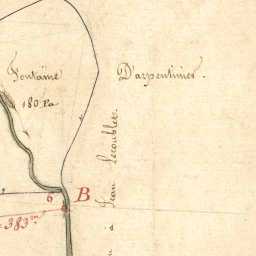 Fontaine D'arpentinier.
180 Pa
a Jean Lecoublet.
B
6
383 m